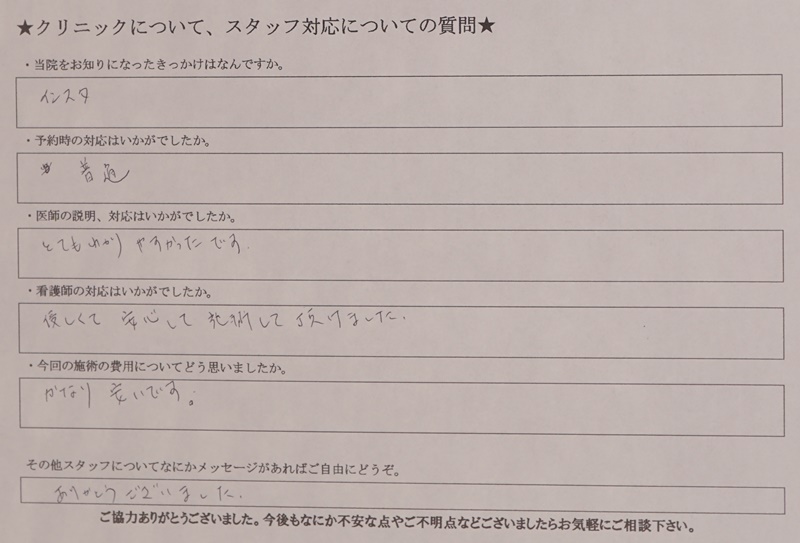 ★クリニックについて、スタッフ対応についての質問★
・当院をお知りになったきっかけはなんですか。
インスタ
・予約時の対応はいかがでしたか。
普通
・医師の説明、対応はいかがでしたか。
とてもわかりやすかったです.
・看護師の対応はいかがでしたか。
優しくて安心して施術して頂けました.
・今回の施術の費用についてどう思いましたか。
かなり安いです。
その他スタッフについてなにかメッセージがあればご自由にどうぞ。
ありがとうございました.
ご協力ありがとうございました。今後もなにか不安な点やご不明点などございましたらお気軽にご相談下さい。